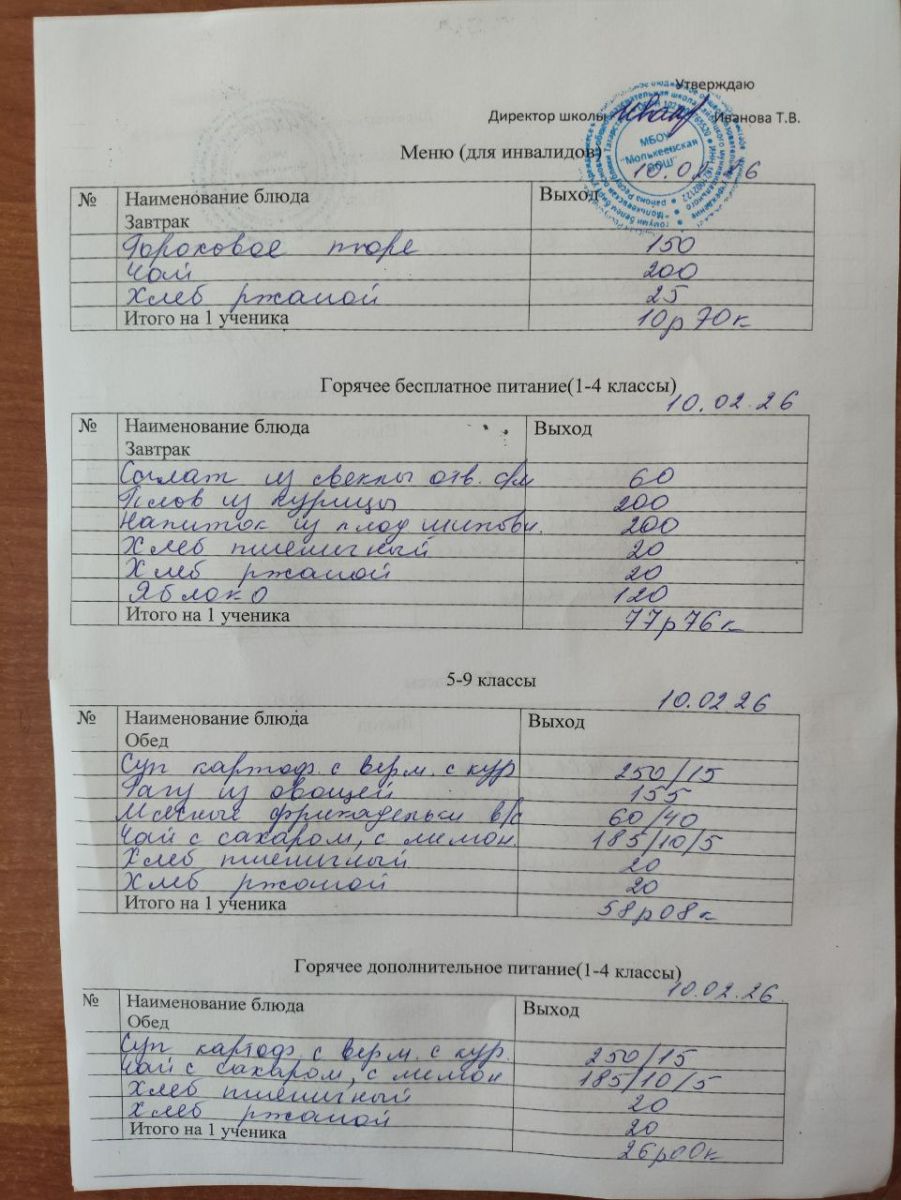 Утверждаю
Директор школы Иванова Т.В.
МБОУ "Молькеевская ООШ"
Меню (для инвалидов)
10.02.26
№ Наименование блюда Выход
Завтрак
Гороховое пюре 150
Чай 200
Хлеб ржаной 25
Итого на 1 ученика 10р70к
Горячее бесплатное питание(1-4 классы)
10.02.26
№ Наименование блюда Выход
Завтрак
Салат из свеклы отв. с/м 60
Плов из курицы 200
Напиток из плод шиповн. 200
Хлеб пшеничный 20
Хлеб ржаной 20
Яблоко 120
Итого на 1 ученика 77р76к
5-9 классы
10.02 26
№ Наименование блюда Выход
Обед
Суп картоф. с верм. с кур 250/15
Рагу из овощей 155
Мясные фрикадельки в/с 60/40
Чай с сахаром, с лимон. 185/10/5
Хлеб пшеничный 20
Хлеб ржаной 20
Итого на 1 ученика 58р08к
Горячее дополнительное питание(1-4 классы)
10.02.26
№ Наименование блюда Выход
Обед
Суп картоф. с верм. с кур. 250/15
Чай с сахаром, с лимон 185/10/5
Хлеб пшеничный 20
Хлеб ржаной 20
Итого на 1 ученика 26р00к